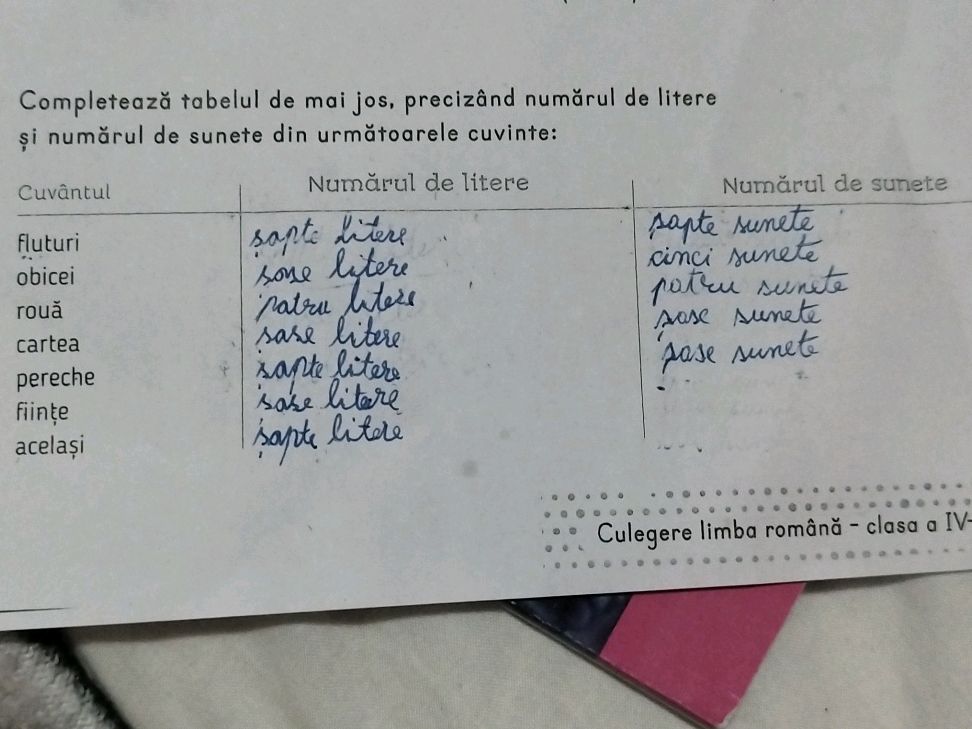 Completează tabelul de mai jos, precizând numărul de litere
și numărul de sunete din următoarele cuvinte:
Cuvântul Numărul de litere Numărul de sunete
fluturi șapte litere șapte sunete
obicei șase litere cinci sunete
rouă patru litere patru sunete
cartea sase litere șase sunete
pereche șapte litere șase sunete
ființe sase litere
același șapte litere
Culegere limba română - clasa a IV-